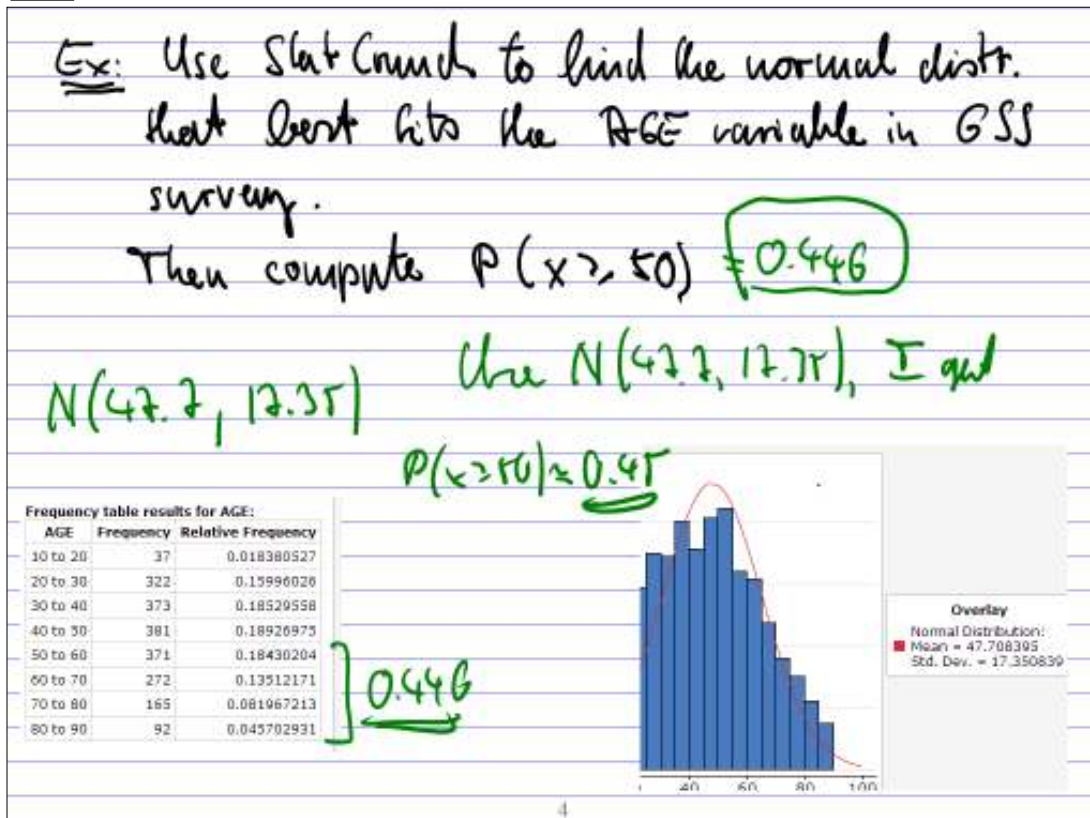 Ex: Use StatCrunch to find the normal distr.
that best fits the AGE variable in GSS
survey.
Then compute P(x ≥ 50) = 0.446
N(47.7, 17.35)
Use N(47.7, 17.35), I get
P(x ≥ 50) ≈ 0.45
Frequency table results for AGE:
AGE Frequency Relative Frequency
10 to 20 37 0.018380527
20 to 30 322 0.15996026
30 to 40 373 0.18529558
40 to 50 381 0.18926975
50 to 60 371 0.18430204
60 to 70 272 0.13512171
70 to 80 165 0.081967213
80 to 90 92 0.045702931
0.446
40 60 80 100
Overlay
Normal Distribution:
Mean = 47.708395
Std. Dev. = 17.350839
4